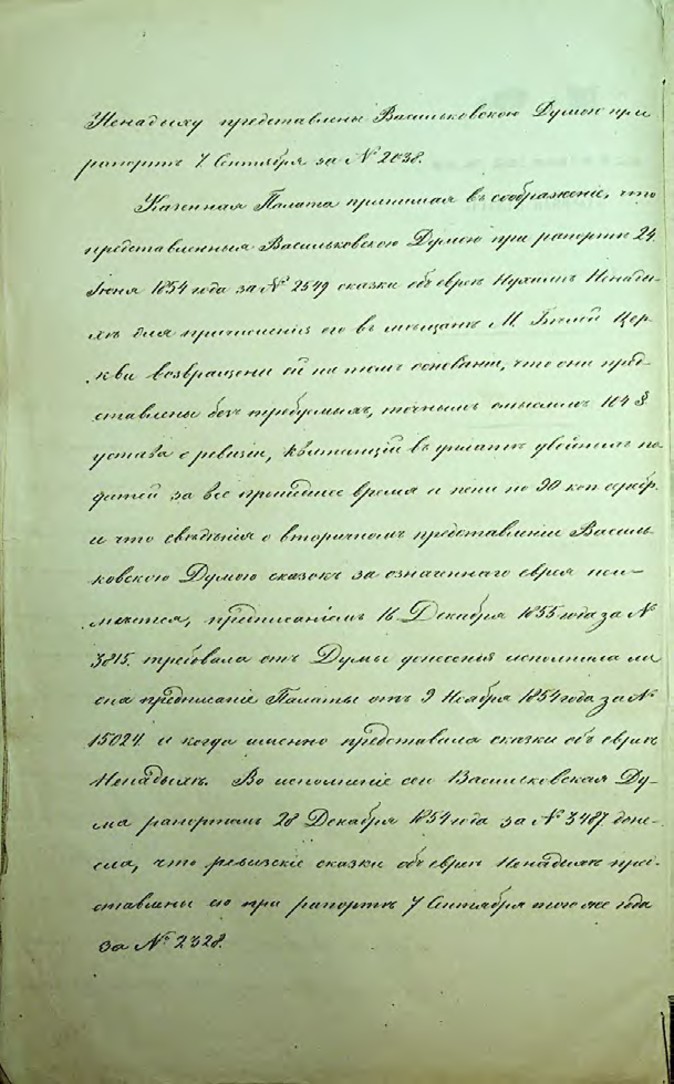 Ненадыху представлены Васильковскою Думою при
рапортѣ 7. Сентября за № 2038.
Казенная Палата принимая въ соображеніе, что
представленныя Васильковскою Думою при рапортѣ 24.
Іюня 1854 года за № 2549 сказки объ евреѣ Нухимѣ Ненады-
хѣ для причисленія его въ мѣщане М. Бѣлой Цер-
кви возвращены ей на томъ основаніи, что они пред-
ставлены безъ требуемыхъ, точнымъ смысломъ 104 §
устава о ревизіи, квитанцій въ уплатѣ двойныхъ по-
датей за все прошедшее время и пени по 90 коп серебр.
и что свѣдѣнія о вторичномъ представленіи Василь-
ковскою Думою сказокъ за означеннаго еврея неи-
мѣется, предписаніемъ 16 Декабря 1855 года за №
3815. требовала отъ Думы донесенія исполнила ли
она предписаніе Палаты отъ 9 Ноября 1854 года за №
15024. и когда именно представила сказки объ евреѣ
Ненадыхѣ. Во исполненіе сего Васильковская Ду-
ма рапортомъ 28 Декабря 1854 года за № 3487 доне-
сла, что ревизскіе сказки объ евреѣ Ненадыхѣ пред-
ставлены ею при рапортѣ 7 Сентября того же года
за № 2328.